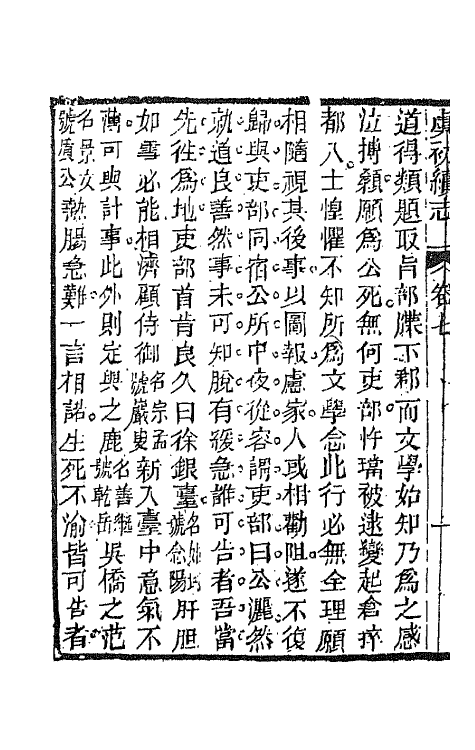 虞初續志 卷七
道得類題取旨部牒下郡而文學始知乃爲之感
泣搏顙願爲公死無何吏部忤璫被逮變起倉猝
都人士惶懼不知所爲文學念此行必無全理願
相隨視其後事以圖報慮家人或相勸阻遂不復
歸與吏部同宿公所中夜從容謂吏部曰公灑然
就道良善然事未可知脫有緩急誰可告者吾當
先往爲地吏部首肯良久曰徐銀臺號念陽肝胆
如雪必能相濟顧侍御名宗孟號巖叟新入臺中意氣不
薄可與計事此外則定興之鹿名善繼號乾岳吳橋之范
名景文號質公熱腸急難一言相諾生死不渝皆可告者